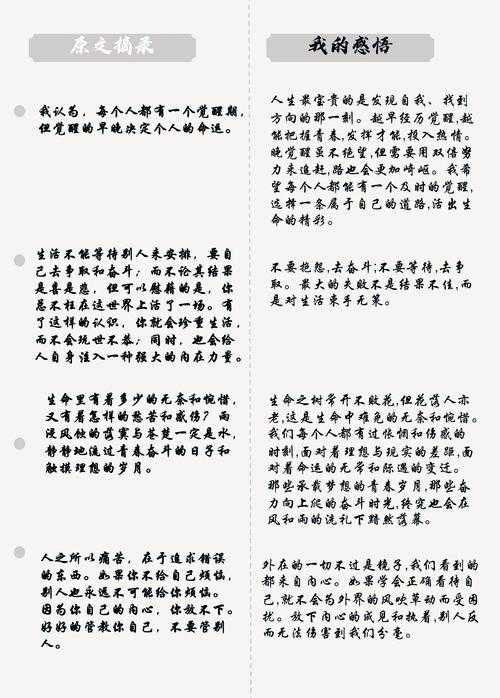 原文摘录
我认为，每个人都有一个觉醒期，
但觉醒的早晚决定个人的命运。
生活不能等待别人来安排，要自
己去争取和奋斗；而不论其结果
是喜是悲，但可以慰藉的是，你
总不枉在这世界上活了一场。有
了这样的认识，你就会珍重生活，
而不会玩世不恭；同时，也会给
人自身注入一种强大的内在力量。
生命里有着多少的无奈和惋惜，
又有着怎样的愁苦和感伤？而
浸风蚀的落寞与苍楚一定是水，
静静地流过青春奋斗的日子和
触摸理想的岁月。
人之所以痛苦，在于追求错误
的东西。如果你不给自己烦恼，
别人也永远不可能给你烦恼。
因为你自己的内心，你放不下。
好好的管教你自己，不要管别
人。
我的感悟
人生最宝贵的是发现自我、找到
方向的那一刻。越早经历觉醒,越
能把握青春,发挥才能,投入热情。
晚觉醒虽不绝望,但需要用双倍努
力来追赶,路也会更加崎岖。我希
望每个人都能有一个及时的觉醒,
选择一条属于自己的道路,活出生
命的精彩。
不要抱怨,去奋斗;不要等待,去争
取。最大的失败不是结果不佳,而
是对生活束手无策。
生命之树常开不败花,但花落人亦
老,这是生命中难免的无奈和惋惜。
我们每个人都有过怅惘和伤感的
时刻,面对着理想与现实的差距,面
对着命运的无常和际遇的变迁。
那些承载梦想的青春岁月,那些奋
力向上爬的奋斗时光,终究也会在
风和雨的洗礼下黯然落幕。
外在的一切不过是镜子,我们看到的
都来自内心。如果学会正确看待自
己,就不会为外界的风吹草动而受困
扰。放下内心的成见和执着,别人反
而无法伤害到我们分毫。